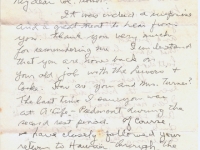 My dear Mr.
It was indeed a surprise
and a great treat to hear from
you. Thank you very much
for remembering me. I can understand
that you are now back on
your old job with the
Cooke. How are you and Mrs. Turner?
The last time I saw you was
at - Piedmont during the
second rest period. Of course,
I have closely followed your
return to Hawaii through the